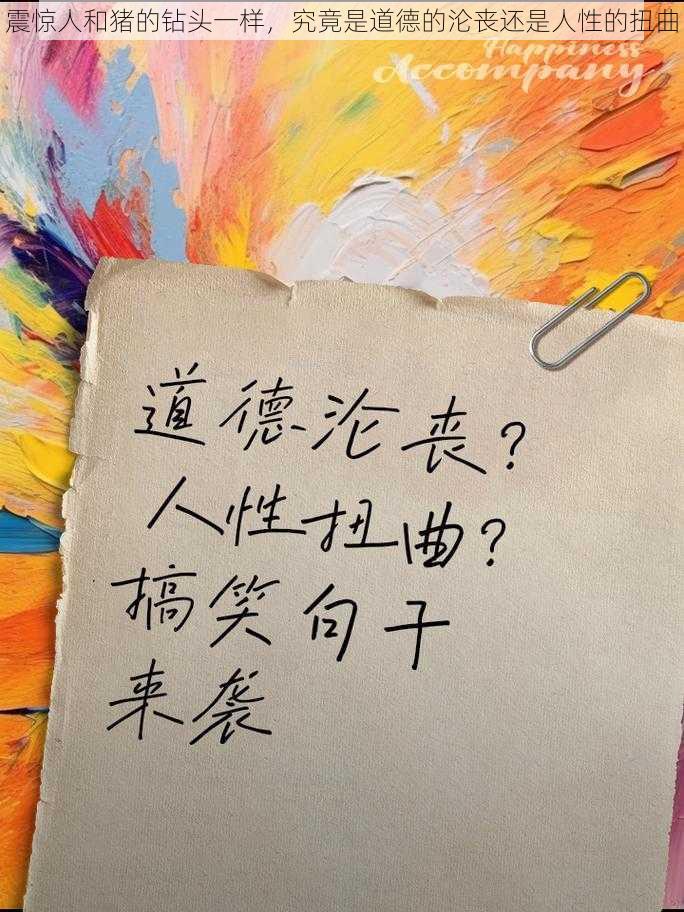 震惊人和猪的钻头一样，究竟是道德的沦丧还是人性的扭曲
Happiness
Accompany
道德沦丧？
人性扭曲？
搞笑句子
来袭